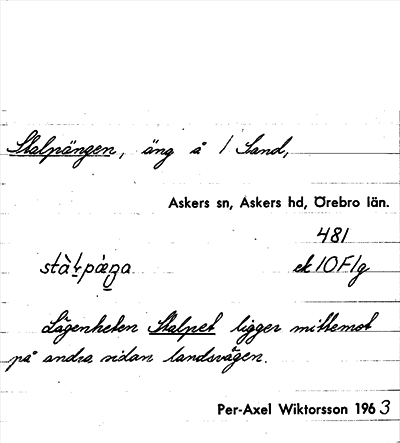 Stalpängen, äng å 1 Sand,
Askers sn, Askers hd, Örebro län.
481
stàl̥pæŋa ek 10F1g
Lägenheten Stalpet ligger mittemot
på andra sidan landsvägen.
Per-Axel Wiktorsson 1963